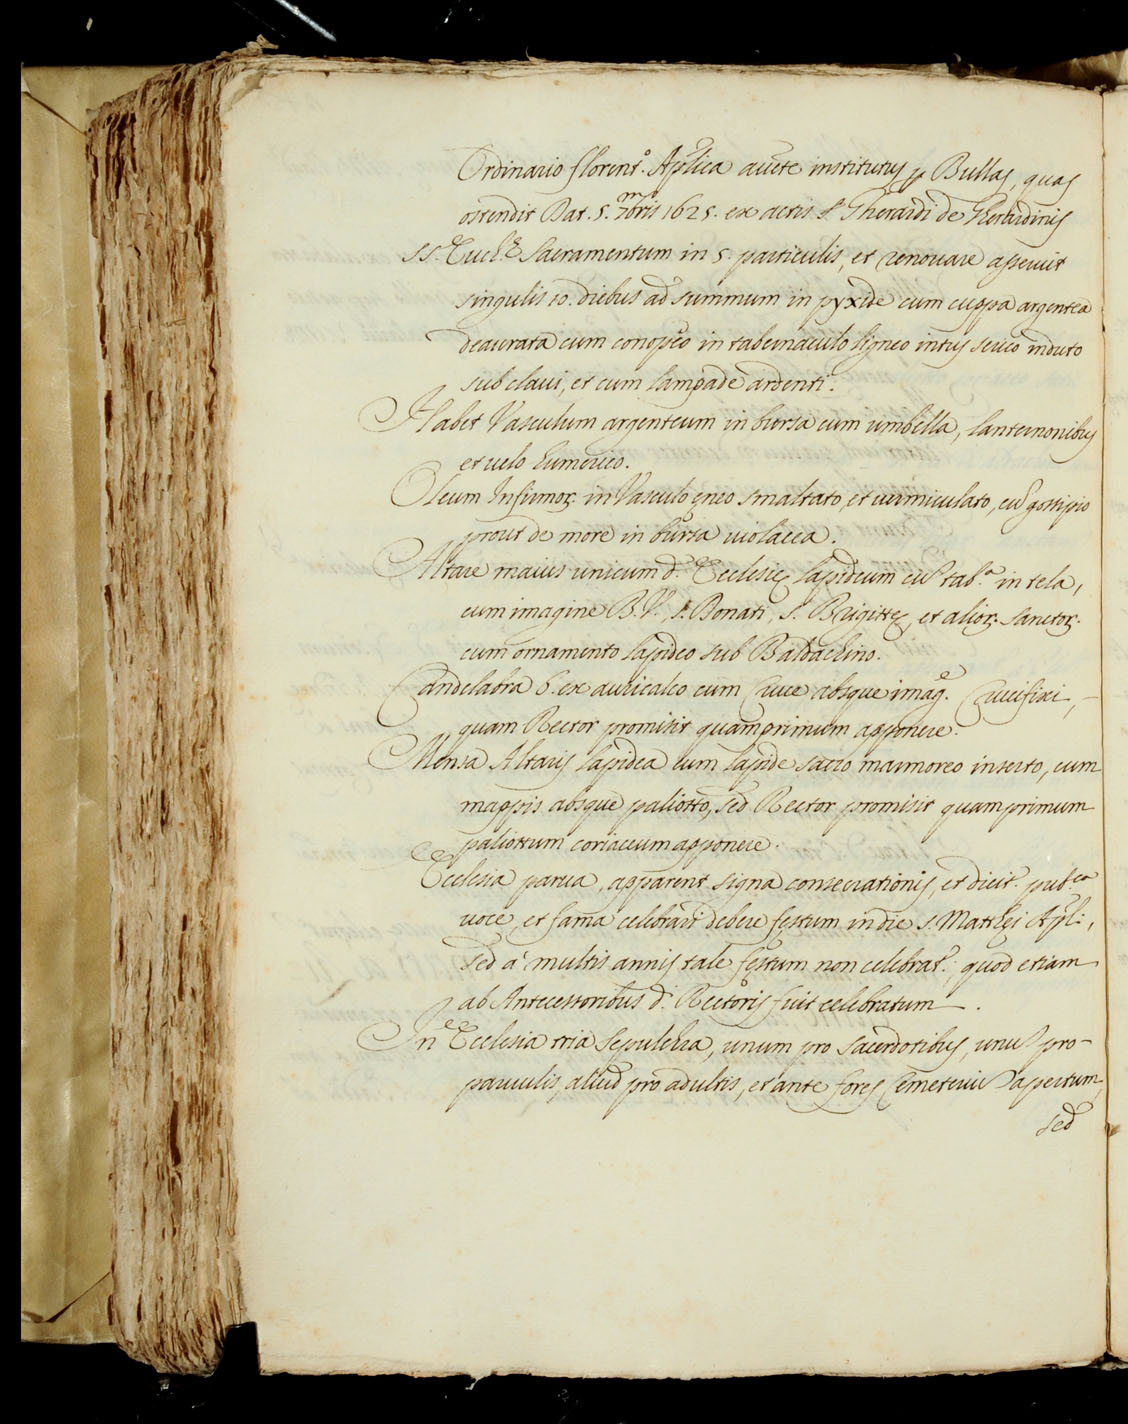 Ordinario florent.º Aplica aucte institutus p Bullas, quas
ostendit Dat. 5. Xmbris 1625. ex actis S. Gherardi de Gherardinis
SS. Euch.e Sacramentum in 5. particulis, et renouare asseruit
singulis 10. diebus ad summum in pyxide cum cuppa argentea
deaurata cum conopeo in tabernaculo ligneo intus serico induto
sub claui, et cum lampade ardenti.
Habet Vasculum argenteum in bursa cum umbella, lanternonibus
et uelo humerico.
Oleum Infirmor. in Vasculo ęneo smaltato, et uermiculato, cū gossipio
prout de more in bursa uiolacea.
Altare maius unicum d. Ecclesię lapideum cū tab.a in tela,
cum imagine B.V., S. Donati, S. Brigittę, et alior. Sanctor.
cum ornamento lapideo sub Baldachino.
Candelabra 6. ex auricalco cum Cruce absque imag.e Crucifixi, –
quam Rector promisit quamprimum apponere.
Mensa Altaris lapidea cum lapide sacro marmoreo inserto, cum
mappis absque paliotto, sed Rector promisit quamprimum
paliottum coriaceum apponere.
Ecclesia parua, apparent signa consecrationis, et dicit. pub.ca
uoce, et fama celebrari debere festum in die S. Matthęi Apli:,
sed à multis annis tale festum non celebrat.; quod etiam
ab Antecessoribus d. Rectoris fuit celebratum.
In d.a Ecclesia tria Sepulchra, unum pro Sacerdotibus, unū pro-
paruulis aliud pro adultis, et ante fores Cemeteriū apertum,
sed